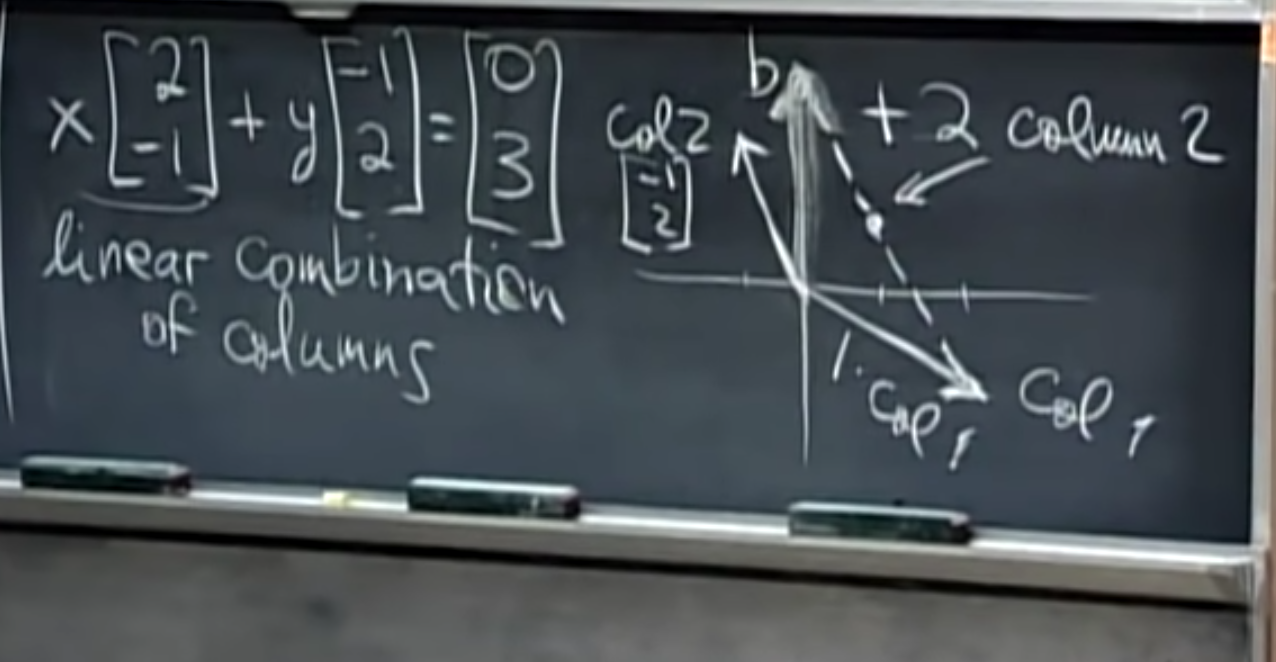 x [2 -1] + y [-1 2] = [0 3]
linear combination
of columns
b
+2 column 2
col 2
[-1 2]
1. col 1
col 1